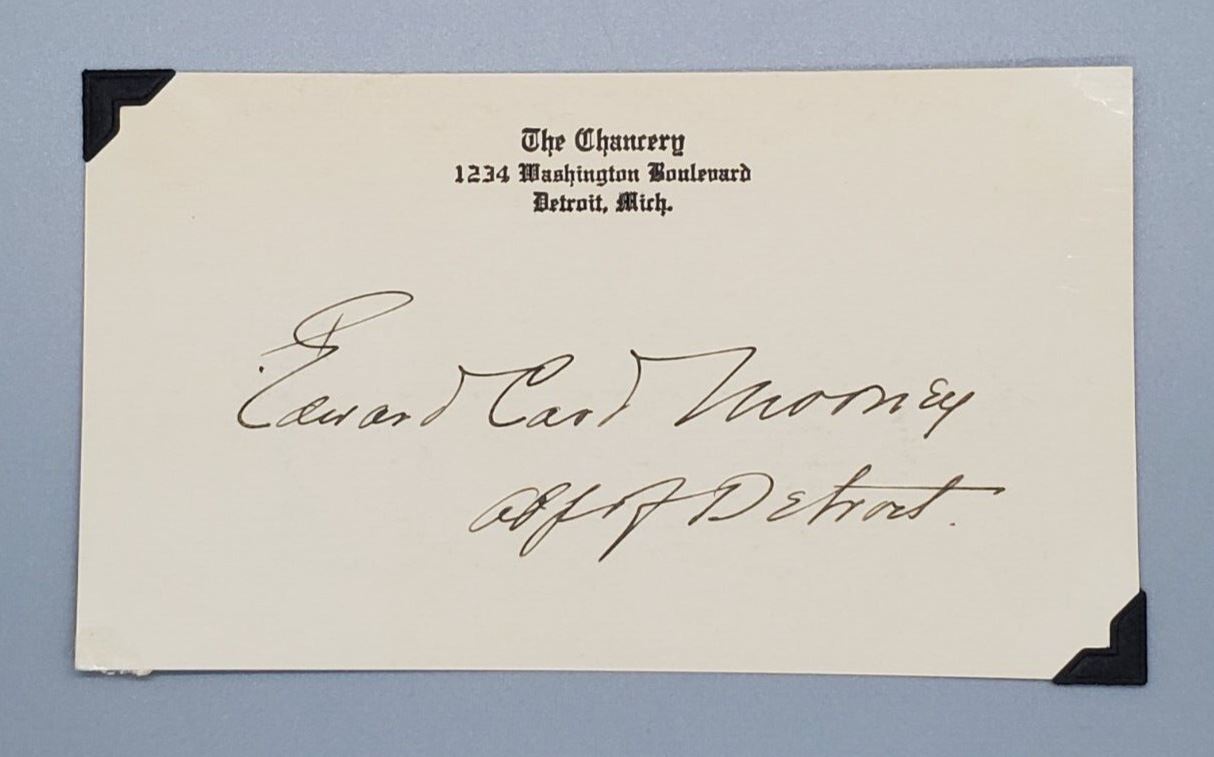 The Chancery
1234 Washington Boulevard
Detroit, Mich.
Edward Card Mooney
of Detroit.